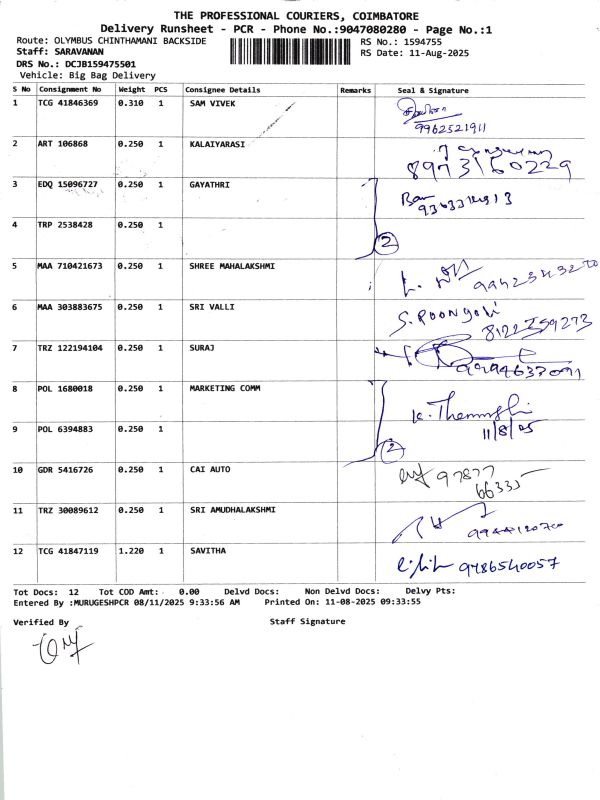 THE PROFESSIONAL COURIERS, COIMBATORE
Delivery Runsheet - PCR - Phone No.:9047080280 - Page No.:1
Route: OLYMBUS CHINTHAMANI BACKSIDE RS No.: 1594755
Staff: SARAVANAN RS Date: 11-Aug-2025
DRS No.: DCJB159475501
Vehicle: Big Bag Delivery
S No Consignment No Weight PCS Consignee Details Remarks Seal & Signature
1 TCG 41846369 0.310 1 SAM VIVEK
9962521911
2 ART 106868 0.250 1 KALAIYARASI
8973160229
3 EDQ 15096727 0.250 1 GAYATHRI
4 TRP 2538428 0.250 1 2
5 MAA 710421673 0.250 1 SHREE MAHALAKSHMI
6 MAA 303883675 0.250 1 SRI VALLI S. POONGODI
8122759273
7 TRZ 122194104 0.250 1 SURAJ
8 POL 1680018 0.250 1 MARKETING COMM
11/8/25
9 POL 6394883 0.250 1 2
10 GDR 5416726 0.250 1 CAI AUTO 97877
66335
11 TRZ 30089612 0.250 1 SRI AMUDHALAKSHMI
12 TCG 41847119 1.220 1 SAVITHA 9786540057
Tot Docs: 12 Tot COD Amt: 0.00 Delvd Docs: Non Delvd Docs: Delvy Pts:
Entered By :MURUGESHPCR 08/11/2025 9:33:56 AM Printed On: 11-08-2025 09:33:55
Verified By Staff Signature